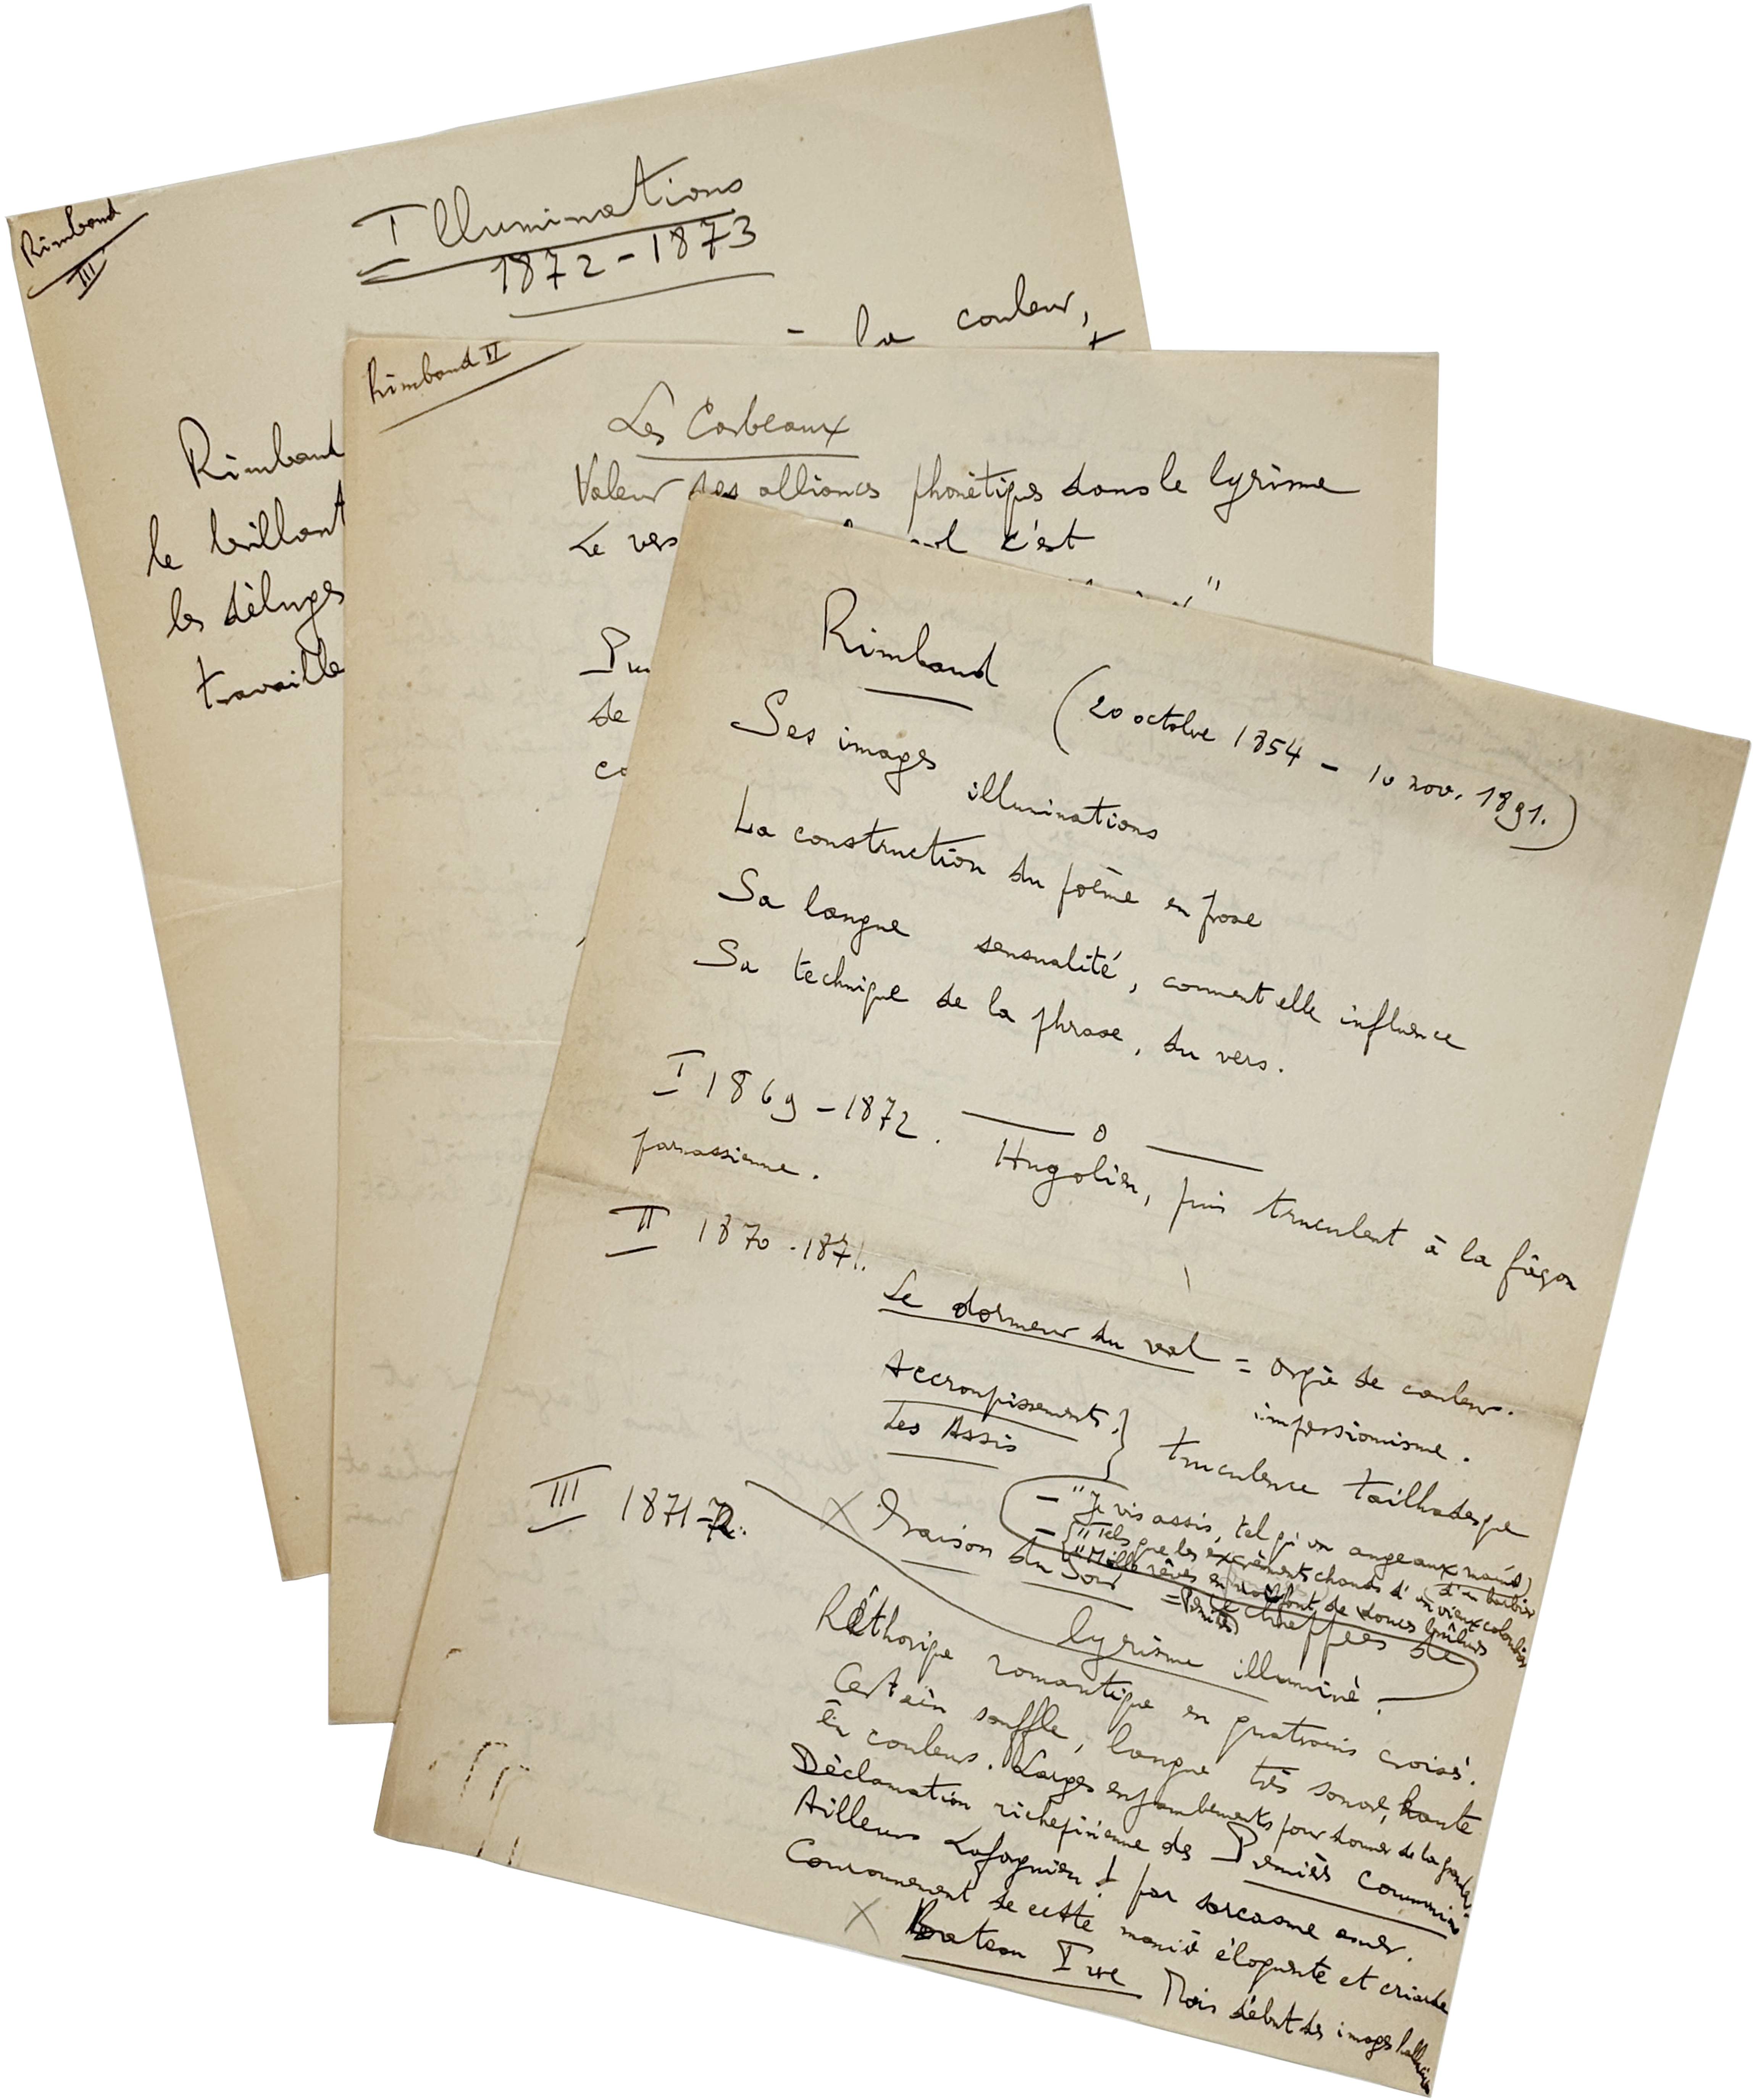 Rimbaud
III
Illuminations
1872-1873
- la couleur,
Rimbaud
le brillant
les déluges
travaille
Rimbaud II
Les Corbeaux
Valeur des alliances phonétiques dans le lyrisme
Le vers c'est
"
de
Rimbaud (20 octobre 1854 - 10 nov. 1891.)
Ses images illuminations
La construction du poème en prose
Sa langue sensualité, comment elle influence
Sa technique de la phrase, du vers.
I 1869-1872. Hugolien, puis truculent à la façon
parnassienne.
II 1870-1871.
Le dormeur du val = orgie de couleur.
impressionnisme.
Accroupissements
Les Assis } truculence tailhadesque
- "Je vis assis, tel qu'un ange aux mains
d'un barbier
- "Tels que les excréments chauds d'un vieux colombier
"Mille rêves en moi font de douces brûlures
III 1871-72.
X Oraison du Soir
lyrisme illuminé.
Réthorique romantique en quatrains croisés.
Certain souffle, langue très sonore, haute
en couleurs. Larges enjambements pour donner de la
Déclamation richepinienne des Premières Communions
Ailleurs Laforguien ! par sarcasme amer.
Couronnement de cette manière éloquente et criarde
X Bateau Ivre Mais début des images